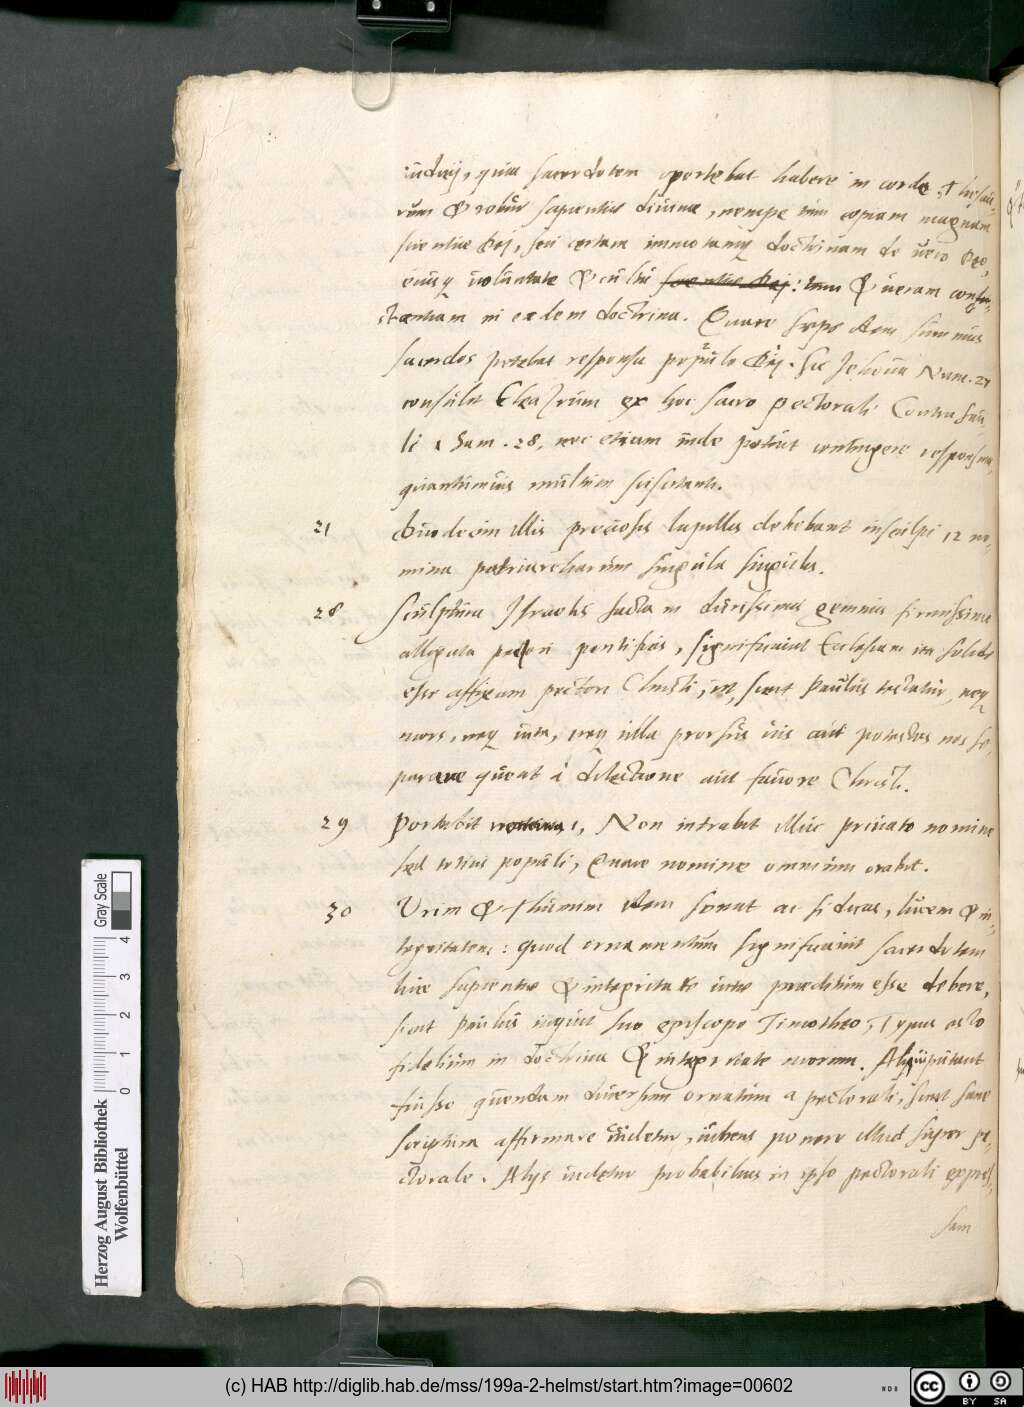 iudicij, quia sacerdotem oportebat habere in corde, Thesau-
rum & robur sapientiae diuinae, nempe tum copiam magnam
scientiae Dei, seu certam immotamq doctrinam de uero Deo,
eiusq uoluntate & cultu scientiae Dei: tum & ueram const-
stantiam in eadem doctrina. Quare saepe etiam summus
sacerdos petebat responsa populo Dei. Sic Iehoua Num. 27
consulit Eleazarum ex hoc sacro pectorali Contra Sau-
li 1 Sam. 28, nec etiam inde potuit contingere responsum,
quantumuis multum sciscitanti.
21 Duodecim illis preciosis lapillis debebant insculpi 12 no-
mina patriarcharum singula singulis.
28 Sculptura Israelis facta in durissimis gemmis firmissime
alligata pectori pontificis, significauit Ecclesiam ita solide
esse affixam pectori Christi, ut, sicut Paulus testatur, neq
mors, neq uita, neq ulla prorsus uis aut potestas nos se-
parare queat à dilectione aut fauore Christi.
29 Portabit nomina, Non intrabit illuc priuato nomine
sed totius populi, Quare nomine omnium orabit.
30 Vrim & Thumim idem sonat ac si dicas, lucem & in-
tegritatem: quod ornamentum significauit sacerdotem
luce sapientiae & integritate uitae praeditum esse debere,
sicut Paulus iniungit suo episcopo Timotheo, Typus esto
fidelium in doctrina & integritate morum. Aliqui putant
fuisse quendam diuersum ornatum a pectorali, sicut sane
scriptura affirmare uidetur, iubens ponere illud super pe-
ctorale. Alijs uidetur probabilius in ipso pectorali expres-
sam
Gray Scale
0 1 2 3 4
Herzog August Bibliothek
Wolfenbüttel
(c) HAB http://diglib.hab.de/mss/199a-2-helmst/start.htm?image=00602
cc BY SA